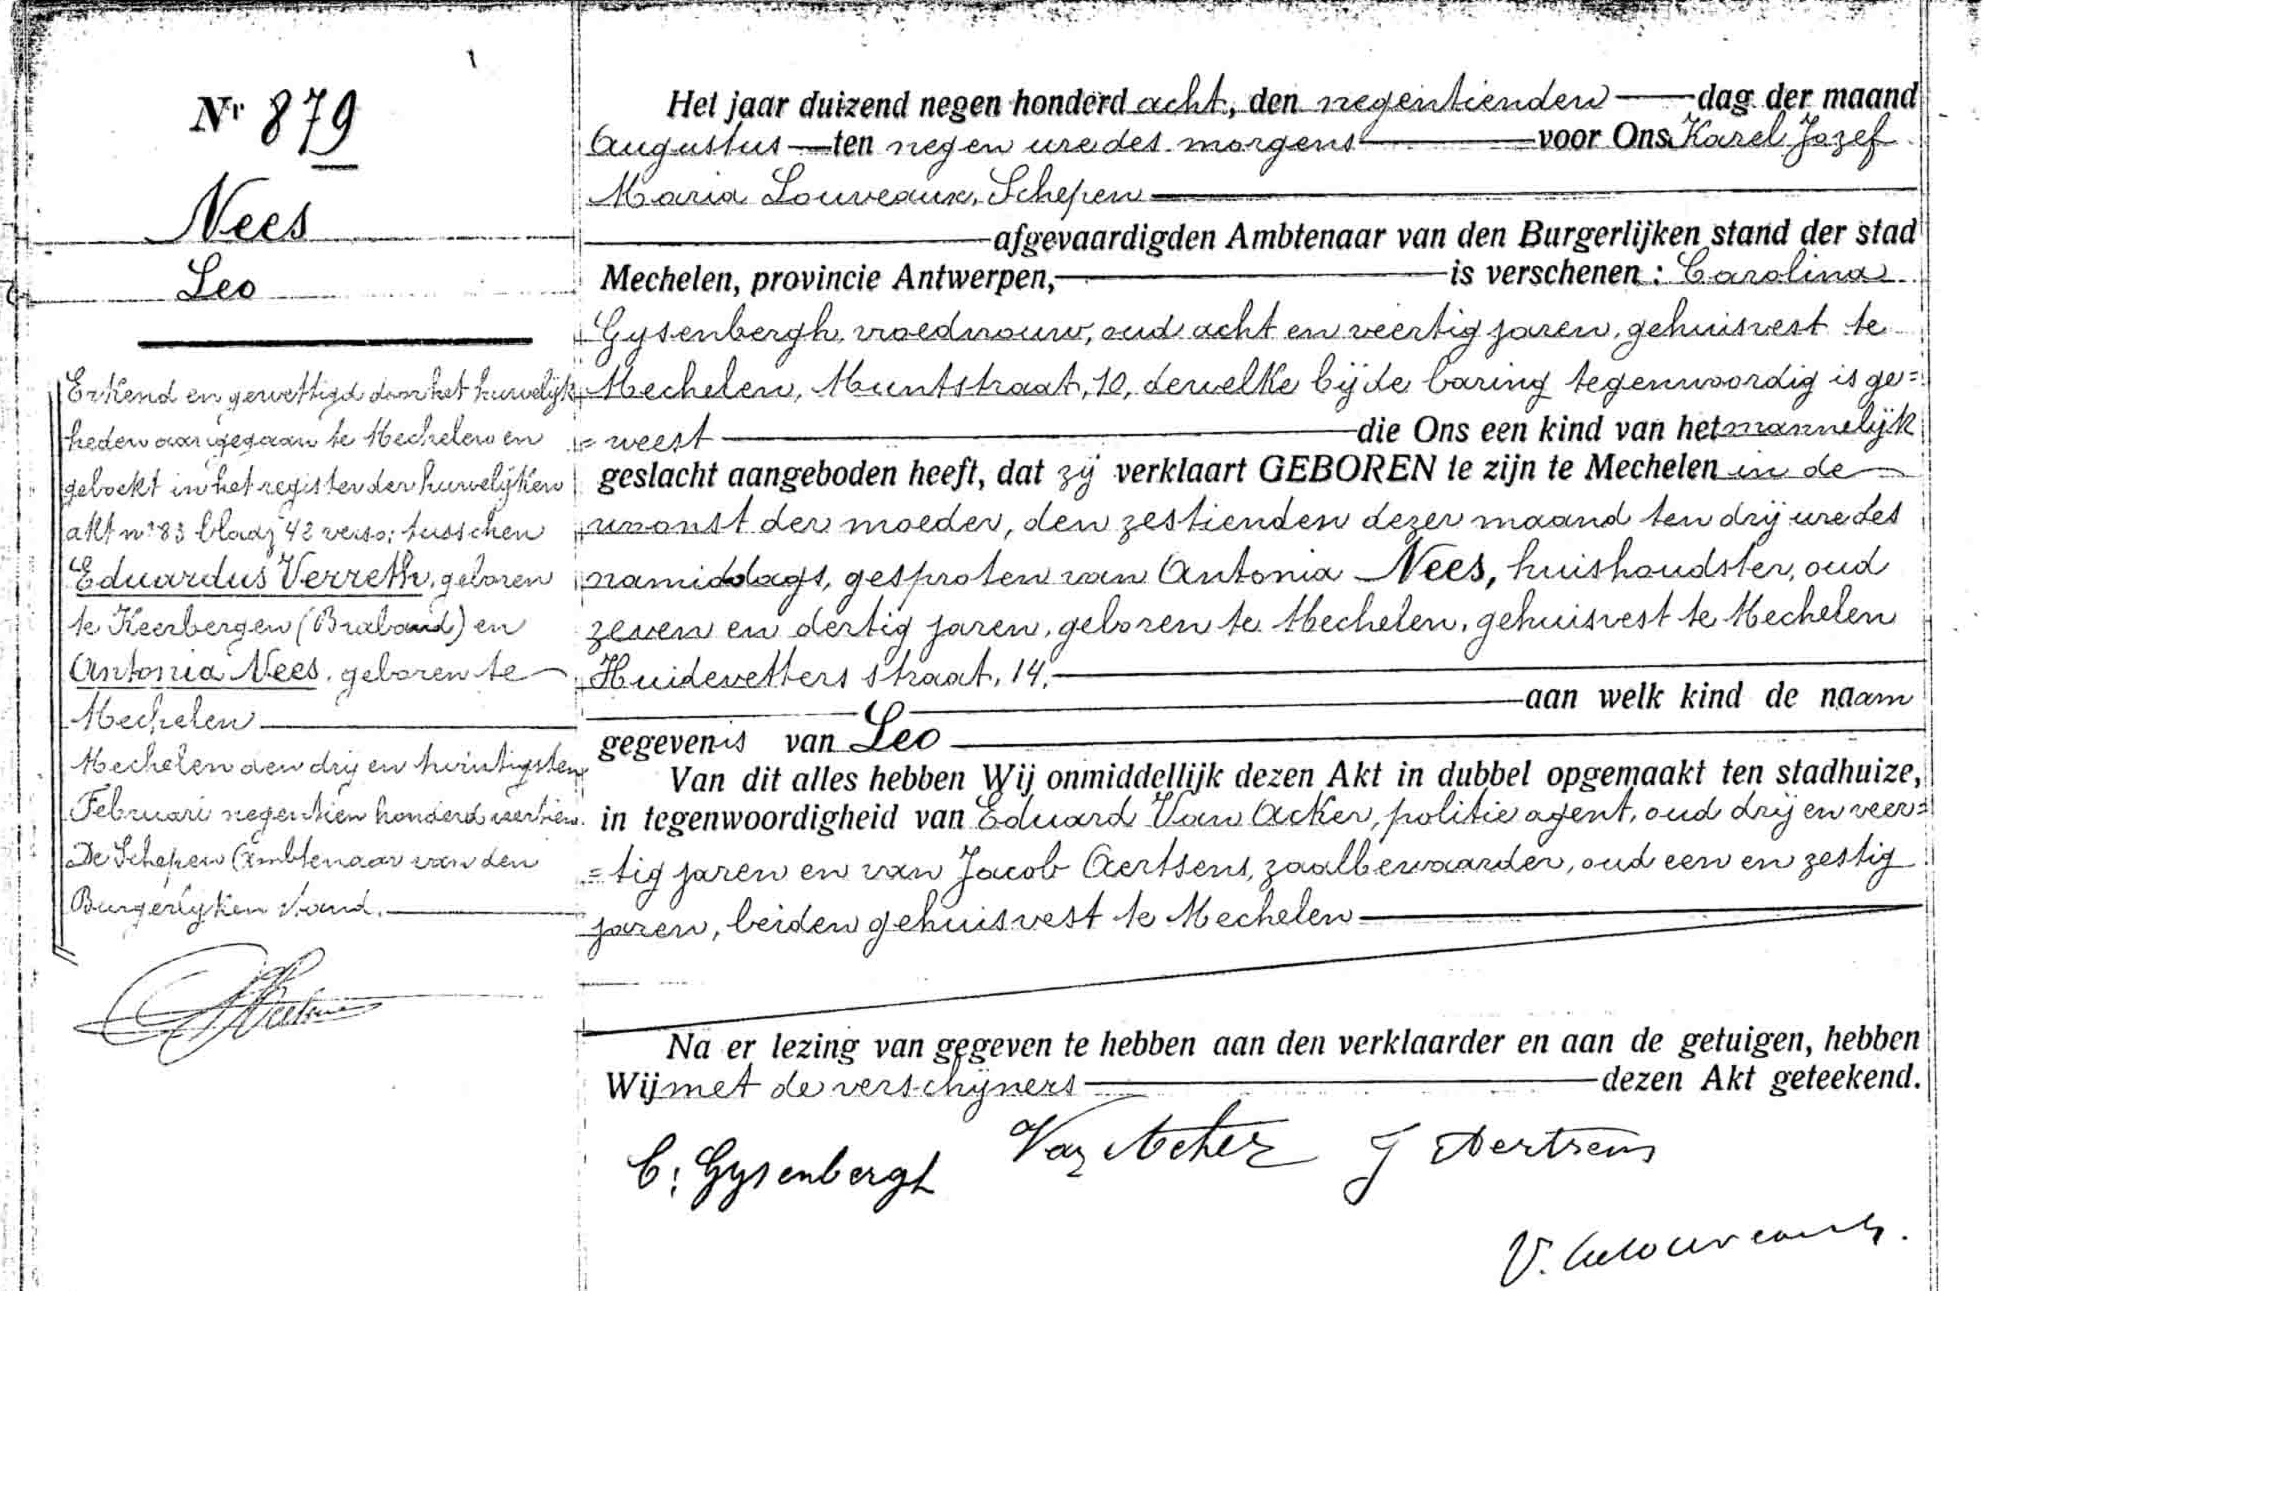 Nr 879
Nees
Leo
Erkend en gewettigd door het huwelijk
heden aangegaan te Mechelen en
geboekt in het register der huwelijken
akt nr 83 bladz 42 verso; tusschen
Eduardus Verreth, geboren
te Keerbergen (Braband) en
Antonia Nees, geboren te
Mechelen
Mechelen den drij en twintigsten
Februari negentien honderd veertien.
De Schepen Ambtenaar van den
Burgerlyken stand.
Het jaar duizend negen honderd acht, den negentienden dag der maand
Augustus ten negen ure des morgens voor Ons Karel Jozef
Maria Louveaux, Schepen
afgevaardigden Ambtenaar van den Burgerlijken stand der stad
Mechelen, provincie Antwerpen, is verschenen : Carolina
Gysenbergh, vroedvrouw, oud acht en veertig jaren, gehuisvest te
Mechelen, Muntstraat, 10, dewelke bij de baring tegenwoordig is ge=
= weest die Ons een kind van het mannelijk
geslacht aangeboden heeft, dat zij verklaart GEBOREN te zijn te Mechelen in de
woonst der moeder, den zestienden dezer maand ten drij ure des
namiddags, gesproten van Antonia Nees, huishoudster, oud
zeven en dertig jaren, geboren te Mechelen, gehuisvest te Mechelen
Huidevetters straat, 14,
aan welk kind de naam
gegeven is van Leo
Van dit alles hebben Wij onmiddellijk dezen Akt in dubbel opgemaakt ten stadhuize,
in tegenwoordigheid van Eduard Van Acker, politie agent, oud drij en veer=
= tig jaren en van Jacob Aertsens, zaalbewaarder, oud een en zestig
jaren, beiden gehuisvest te Mechelen
Na er lezing van gegeven te hebben aan den verklaarder en aan de getuigen, hebben
Wij met de verschijners dezen Akt geteekend.
C: Gysenbergh Van Acker J Aertsens